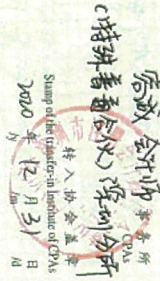 詹诚会计师事务所
CPAs
(特殊普通合伙)深圳分所
转入协会盖章
Stamp of the transfer-in Institute of CPAs
2020年12月31日
/y /m /d